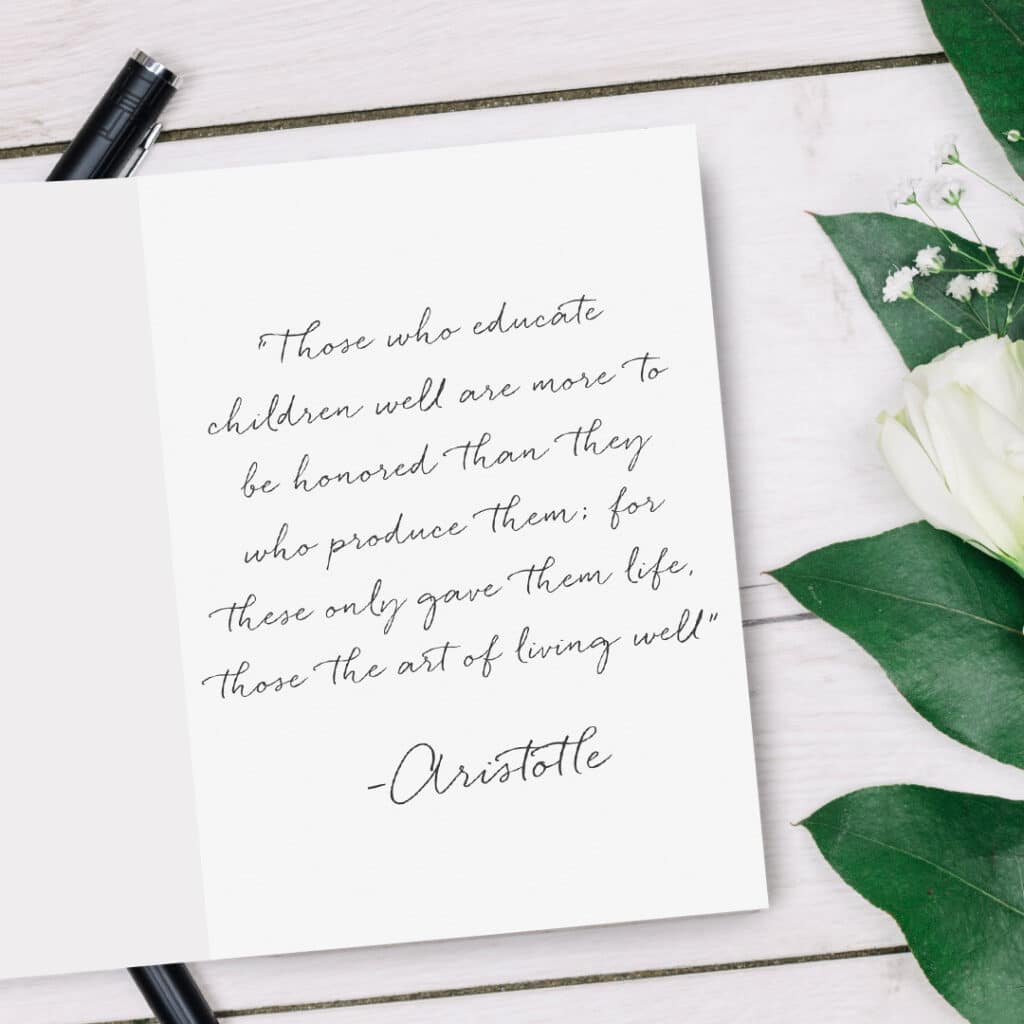 "Those who educate
children well are more to
be honored than they
who produce them; for
these only gave them life,
those the art of living well"
-Aristotle